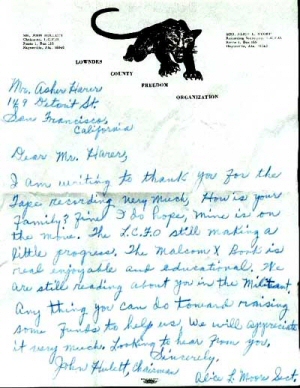 MR. JOHN HULETT
Chairman, L.C.F.O.
Route 1, Box
Hayneville, Ala.
MRS. ALICE L. MOORE
Route 1, Box
Hayneville, Ala.
LOWNDES
COUNTY
FREEDOM
ORGANIZATION
Mr. Asher Harer
149 Detroit St.
San Francisco,
California
Dear Mr. Harer,
I am writing to thank you for the
Tape recording very much, How is your
Family? Fine I do hope, mine is on
the move. The L.C.F.O still making a
little progress. The Malcom X Book is
real enjoyable and educational. We
are still reading about you in the Militant.
Any thing you can do toward raising
some Funds to help us, We will appreciate
it very much. Looking to hear From you.
Sincerely,
John Hulett, Chairman
Alice L. Moore Sect.